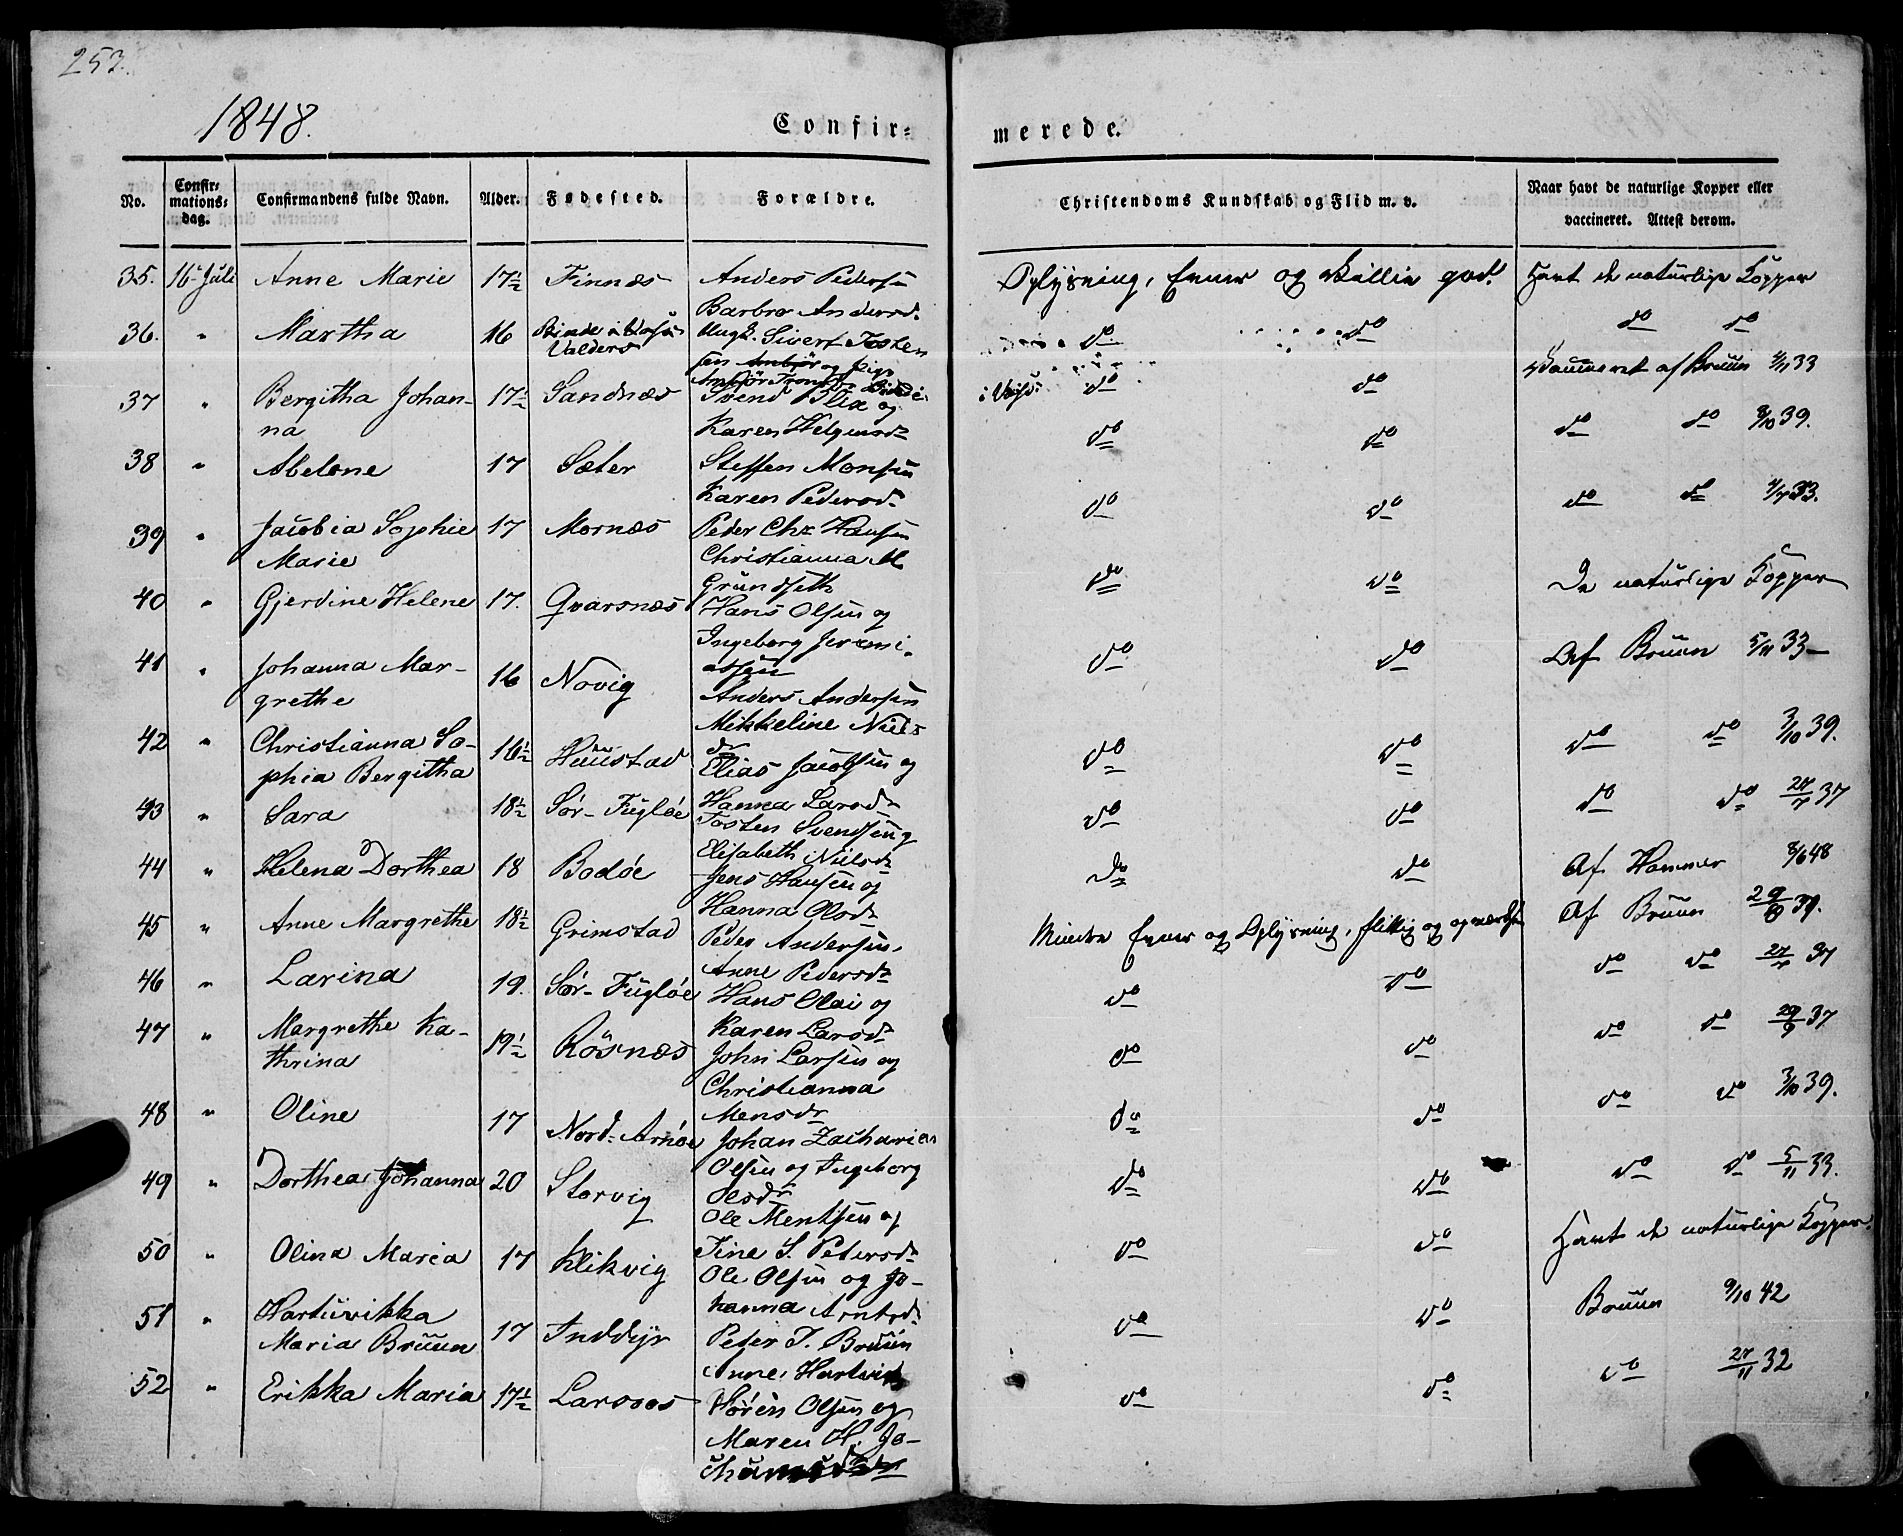 252.
1848.
Confir-
merede.
No.
Confir-
mations-
dag.
Confirmandens fulde Navn.
Alder.
Fødested.
Forældre.
Christendoms Kundskab og Flid m. v.
Naar havt de naturlige Kopper eller
vaccineret. Attest derom.
35. 16 Juli Anne Marie 17½ Finnæs Anders Pedersen
Barbro Andersd.
Oplysning, Evner og Villie god. Havt de naturlige Kopper
36. " Martha 16 Valders Ungk. Sivert Tosten
sen og Pige
do do do do
37 " Bergitha Johan-
na 17½ Sandnæs Svend Blix og
Karen Helgensdr
do do Vaccineret af Bruun 4/11 33
38 " Abelone 17 Sæter Steffen Monsen
Karen Pedersdr
do do do do 3/10 39.
39 " Jacobia Sophie
Marie 17 Mornæs Peder Chr. Hansen
Christianna M
Grundseth
do do do do 33.
40 " Gjerdine Helene 17. Qvarsnæs Hans Olsen og
Ingeborg Jeremi-
assen
do do De naturlige Kopper
41 " Johanna Mar-
grethe 16 Novig Anders Andersen
Mikkeline Niels
dr
do do Af Bruun 5/11 33
42 " Christianna So-
phia Bergitha 16½ Huustad Elias Jacobsen og
Hanna Larsdr
do do do do 3/10 39.
43 " Sara 18½ Sør-Fugløe Tosten Svendsen og
Elisabeth Nielsdr
do do do do 27/7 37
44 " Helena Dorthea 18 Bodøe Jens Hansen og
Hanna Olsdr
do do Af Hammer 8/6 48
45 " Anne Margrethe 18½ Grimstad Peder Andersen
Anne Pedersdr
Mindre Evner og Oplysning, flittig og Af Bruun 29/9 39.
46 " Larina 19. Sør-Fugløe Hans Olai og
Karen Larsdr
do do do do 27/7 37
47 " Margrethe Ka-
thrina 19½ Røsnæs John Larsen og
Christianna
Mensdr
do do do do 29/9 37
48 " Oline 17 Nord-Arnøe Johan Zacharias
Olsen og Ingeborg
Olsdr
do do do do 3/10 39.
49 " Dorthea Johanna 20 Storvig Ole Mentsen og
Tine S. Petersdr
do do do do 5/11 33.
50 " Olina Maria 17 Klikvig Ole Olsen og Jo-
hanna Arntsdr
do do Havt de naturlige Kopper
51 " Hartvikka
Maria Bruun 17 Inddyr Peter J. Bruun
Anne Hartvigs
do do Bruun 9/10 42
52 " Erikka Maria 17½ Larsoos Sören Olsen og
Maren H. Jo-
do do do 27/11 32